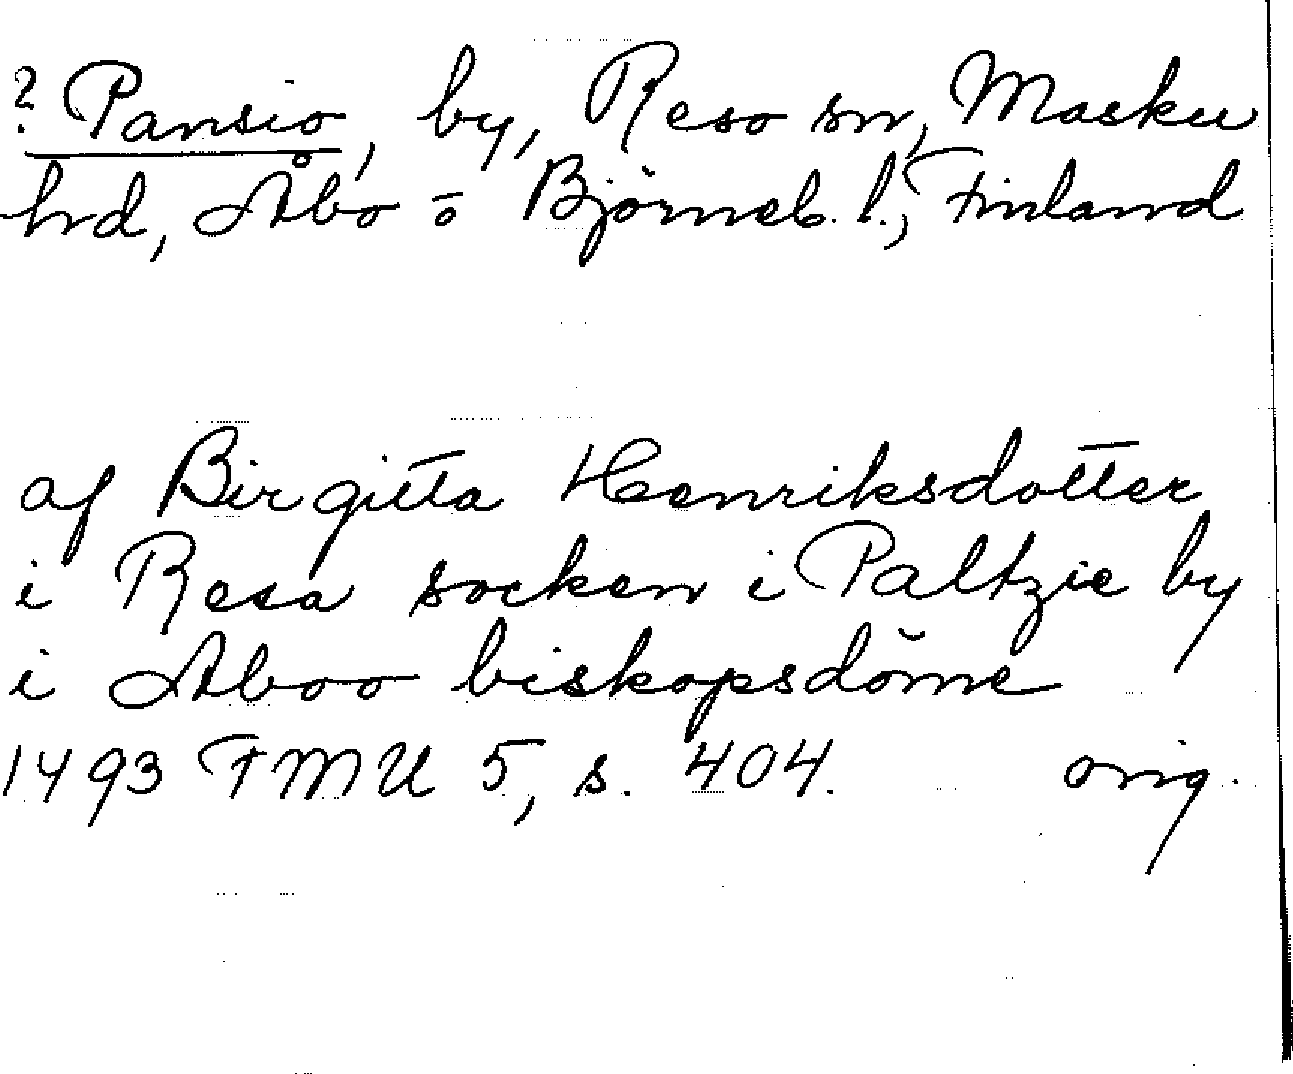 ? Pansio, by, Reso sn, Masku
hrd, Åbo o Björneb. l., Finland
af Birgitta Henriksdotter
i Resa socken i Paltzie by
i Aboo biskopsdöme
1493 FMU 5, s. 404. orig.